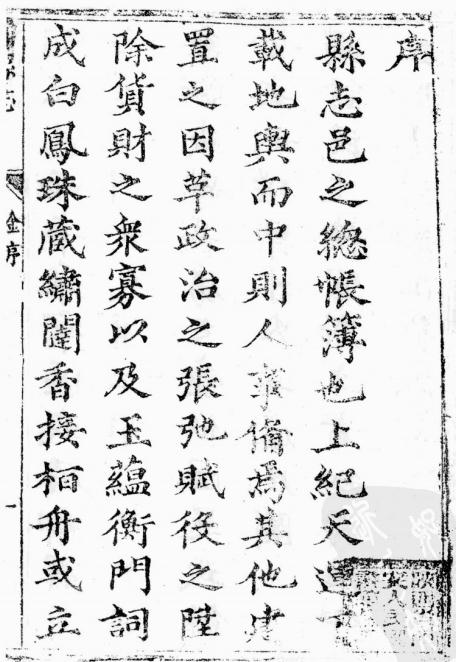 序
縣志邑之總帳簿也上紀天運下
載地輿而中則人事備焉其他建
置之因革政治之張弛賦役之陞
除貨財之衆寡以及玉蘊衡門詞
成白鳳珠藏繡闥香接栢舟或立
金序
一